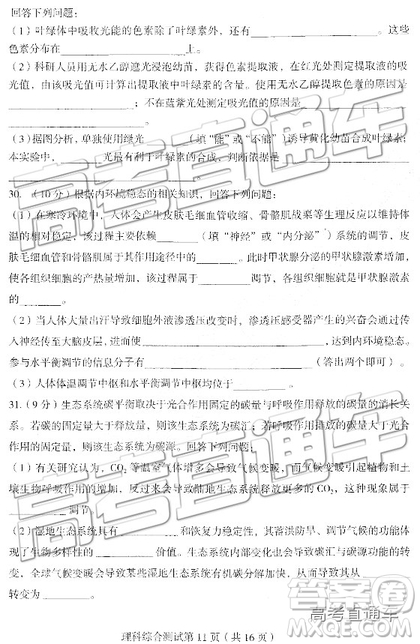 回答下列问题：
（1）叶绿体中吸收光能的色素除了叶绿素外，还有________。这些
色素分布在________上。
（2）科研人员用无水乙醇遮光浸泡幼苗，获得色素提取液，在红光处测定提取液的吸
光值，由该吸光值可计算出提取液中叶绿素的含量。使用无水乙醇提取色素的原因是
________；不在蓝紫光处测定吸光值的原因是
________。
（3）据图分析，单独使用绿光________（填“能”或“不能”）诱导黄化幼苗合成叶绿素；
本实验中，________光最有利于叶绿素的合成，判断依据是________
________。
30.（10分）根据内环境稳态的相关知识，回答下列问题：
（1）在寒冷环境中，人体会产生皮肤毛细血管收缩、骨骼肌战栗等生理反应以维持体
温的相对稳定，该过程主要依赖________（填“神经”或“内分泌”）系统的调节，皮
肤毛细血管和骨骼肌属于其作用途径中的________。此时甲状腺分泌的甲状腺激素增加，
使各组织细胞的产热量增加，该过程属于________调节，各组织细胞就是甲状腺激素
的________。
（2）当人体大量出汗导致细胞外液渗透压改变时，渗透压感受器产生的兴奋会通过传
入神经传至大脑皮层，进而使________，达到内环境稳态。
参与水平衡调节的信息分子有________（答出两个即可）。
（3）人体体温调节中枢和水平衡调节中枢均位于________。
31.（9分）生态系统碳平衡取决于光合作用固定的碳量与呼吸作用释放的碳量的消长关
系。若碳的固定量大于释放量，则该生态系统为碳汇；若呼吸作用释放的碳量大于光合
作用的固定量，则该生态系统为碳源。回答下列问题：
（1）有关研究认为，CO₂等温室气体增多会导致气候变暖，而气候变暖引起植物和土
壤生物呼吸作用增加，反过来会导致陆地生态系统释放更多的CO₂，这种现象属于
________调节。
（2）湿地生态系统具有________和恢复力稳定性，其蓄洪防旱、调节气候的功能体
现了生物多样性的________价值。生态系统内部变化也会导致碳汇与碳源功能的转
变，全球气候变暖会导致某些湿地生态系统有机碳分解加快，从而导致其从________
转变为________。
高考直通车
理科综合测试第11页（共16页）